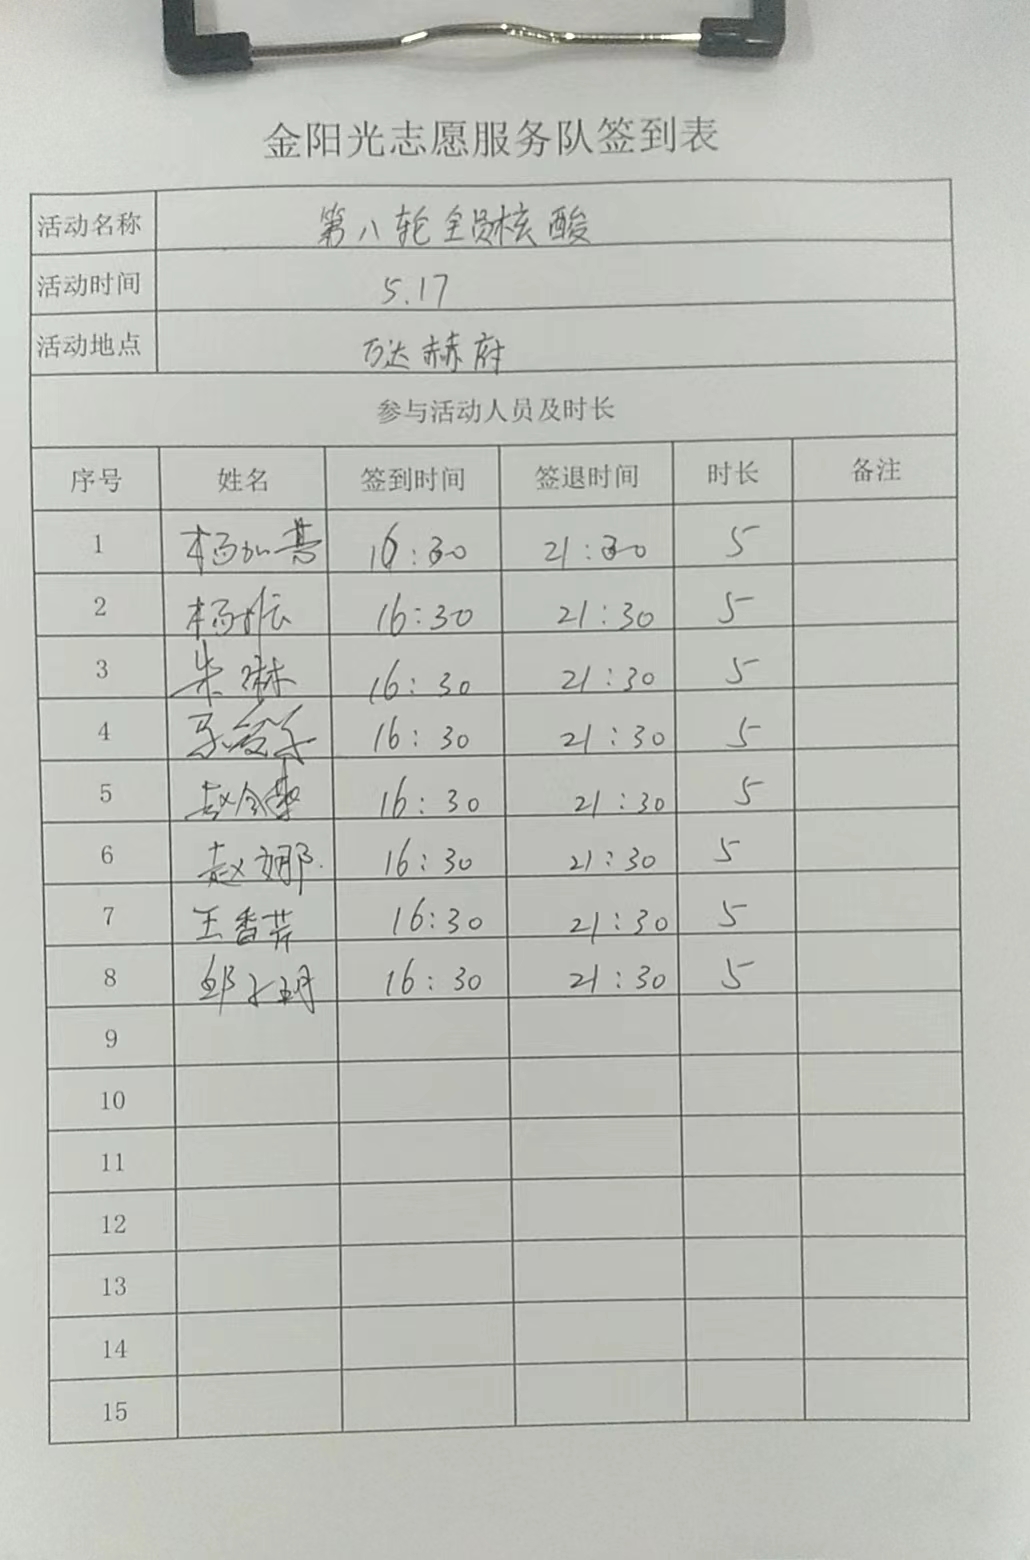 金阳光志愿服务队签到表
活动名称 第八轮全员核酸
活动时间 5.17
活动地点 万达赫府
参与活动人员及时长
序号 姓名 签到时间 签退时间 时长 备注
1 16:30 21:30 5
2 杨振 16:30 21:30 5
3 朱琳 16:30 21:30 5
4 16:30 21:30 5
5 16:30 21:30 5
6 赵娜 16:30 21:30 5
7 王香芹 16:30 21:30 5
8 16:30 21:30 5
9
10
11
12
13
14
15